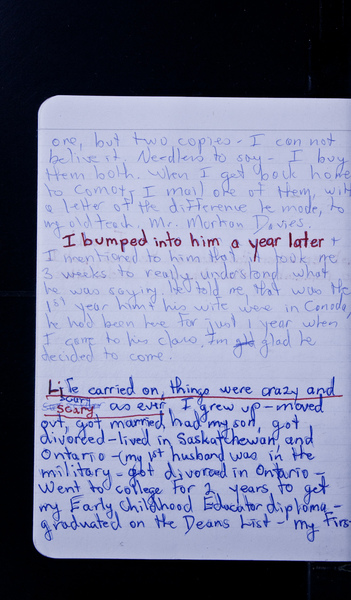 one, but two copies - I can not
belive it. Needless to say - I buy
them both. When I get back home
to Comox I mail one of them, with
a letter of the difference he made, to
my old teach. Mr. Morton Davies.
I bumped into him a year later +
I mentioned to him that it took me
3 weeks to really understand what
he was saying. He told me, that was the
1st year him & his wife were in Canada,
he had been here for just 1 year when
I came to his class, I'm glad he
decided to come.
Life carried on, things were crazy and
scary
scary as ever I grew up - moved
out, got married, had my son, got
divorced - lived in Saskatchewan, and
Ontario - (my 1st husband was in the
military - got divorced in Ontario -
Went to college for 2 years to get
my Early Childhood Educator diploma -
graduated on the Deans List - my First